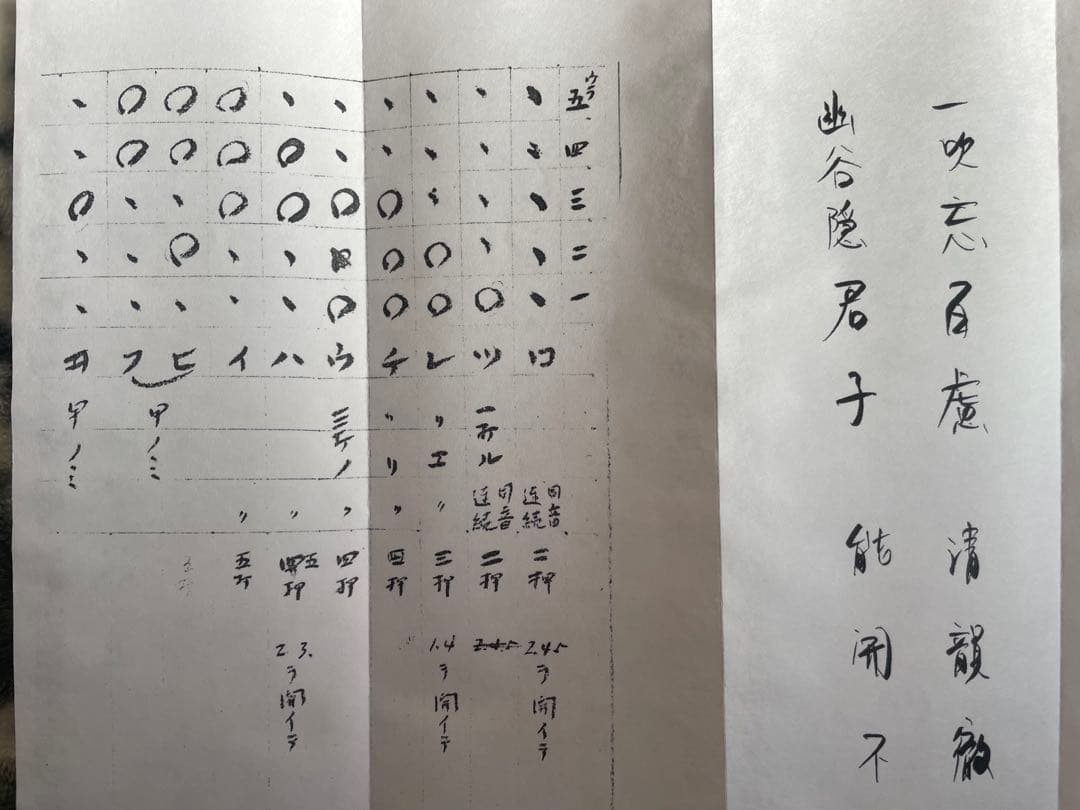 一吹忘百慮 清韻徹
幽谷隠君子 能開不
ウラ
五 四 三 二 一
ロ ツ レ チ ウ ハ イ ヒ フ
一 ル
エ
リ
三
甲ノミ
甲ノミ
同音連続
同音連続
〃
〃
〃
〃
〃
二押
二押
三押
四押
四押
五
2.4.5ヲ開イテ
1.4ヲ開イテ
2.3.ヲ開イテ